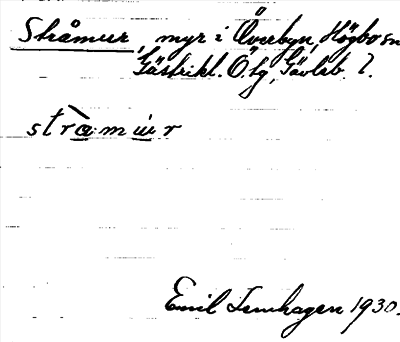 Stråmur myr i Överbyn, Högbo sn
Gästrikl. Ö. tg, Gävleb. l.
stràmùr
Emil Lenhagen 1930.